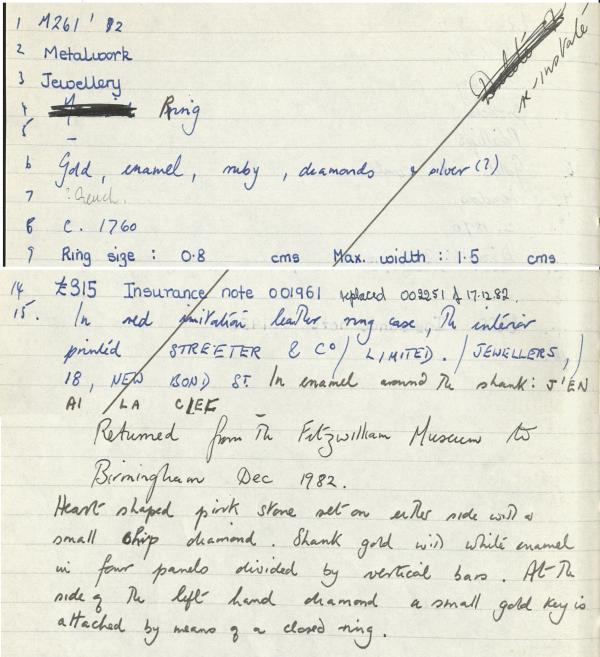 1 M261'82
2 Metalwork
3 Jewellery
re-instate
4 Ring
5 –
6 Gold, enamel, ruby, diamonds & silver (?)
7 ? French.
8 c. 1760
9 Ring size : 0.8 cms Max. width : 1.5 cms
14 £315 Insurance note 001961 replaced 002251 of 17.12.82.
15. In red imitation leather ring case, the interior
printed STREETER & Co / LIMITED. / JEWELLERS, /
18, NEW BOND ST. In enamel around the shank: J'EN
AI LA CLEF
Returned from the Fitzwilliam Museum to
Birmingham Dec 1982.
Heart shaped pink stone set on either side with a
small chip diamond. Shank gold with white enamel
in four panels divided by vertical bars. At the
side of the left hand diamond a small gold key is
attached by means of a closed ring.